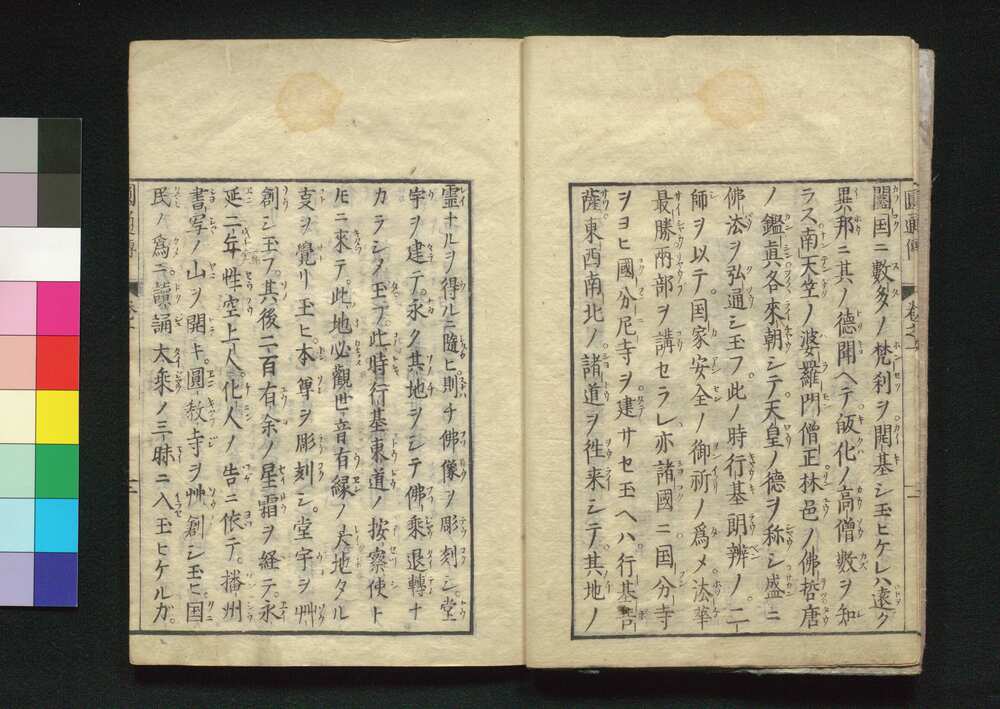 闔国ニ數多ノ梵刹ヲ開基シ玉ヒケレハ遠ク
異邦ニ其ノ德聞ヘテ皈化ノ高僧數ヲ知
ラス南天竺ノ婆羅門僧正林邑ノ佛哲唐
ノ鑑真各来朝シテ天皇ノ德ヲ称シ盛ニ
佛法ヲ弘通シ玉フ此ノ時行基朗辨ノ二
師ヲ以テ国家安全ノ御祈ノ爲メ法華
最勝兩部ヲ講セラレ亦諸國ニ国分寺
ヲヨヒ國分尼寺ヲ建サセ玉ヘハ行基菩
薩東西南北ノ諸道ヲ徃来シテ其地ノ
靈ナルヲ得ルニ隨ヒ則チ佛像ヲ彫刻シ堂
宇ヲ建テ永ク其地ヲシテ佛乗退轉ナ
カラシメ玉フ此時行基東道ノ按察使ト
𪜈ニ来テ此地必觀世音有縁ノ大地タル
支ヲ覺リ玉ヒ本尊ヲ彫刻シ堂宇ヲ艸
創シ玉フ其後二百有余ノ星霜ヲ経テ永
延二年性空上人化人ノ告ニ依テ播州
書写ノ山ヲ開キ圓教寺ヲ艸創シ玉ヒ国
民ノ爲ニ讀誦大乗ノ三昧ニ入玉ヒケルカ